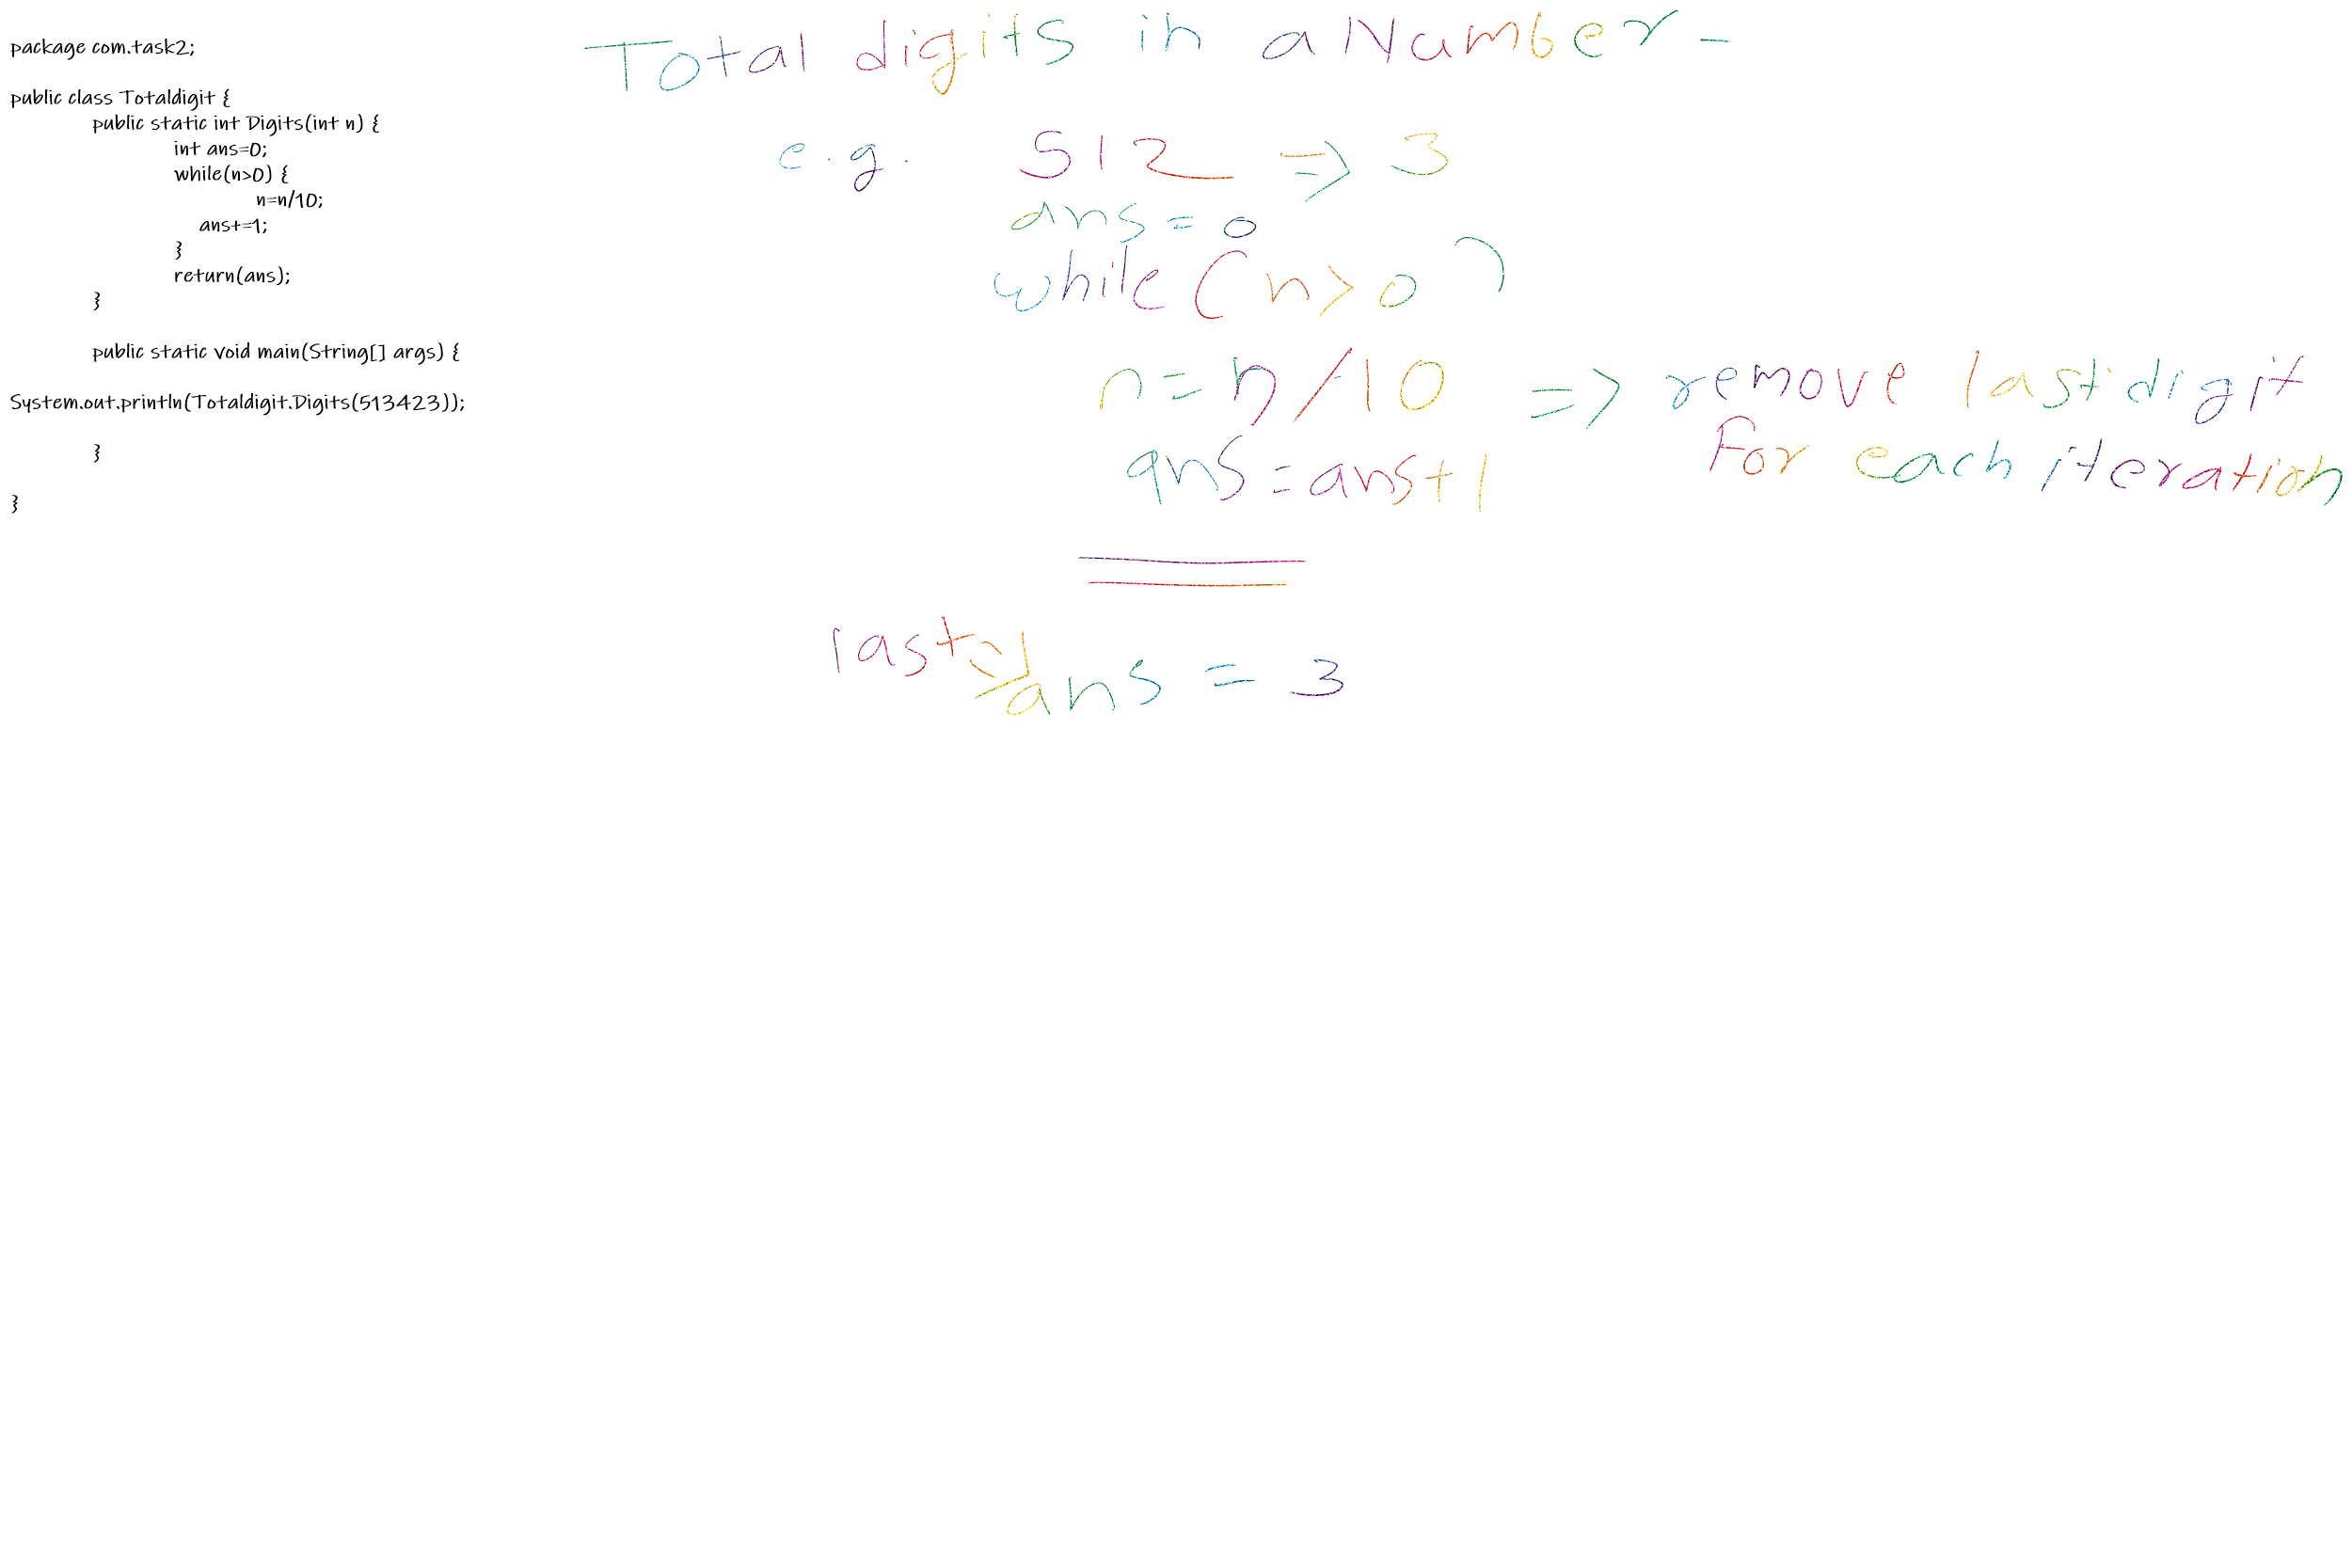 package com.task2;
public class Totaldigit {
public static int Digits(int n) {
int ans=0;
while(n>0) {
n=n/10;
ans+=1;
}
return(ans);
}
public static void main(String[] args) {
System.out.println(Totaldigit.Digits(513423));
}
}
Total digits in a Number -
e.g. 512 => 3
ans = 0
while(n>0)
n=n/10 => remove last digit
For each iteration
ans=ans+1
last
ans = 3